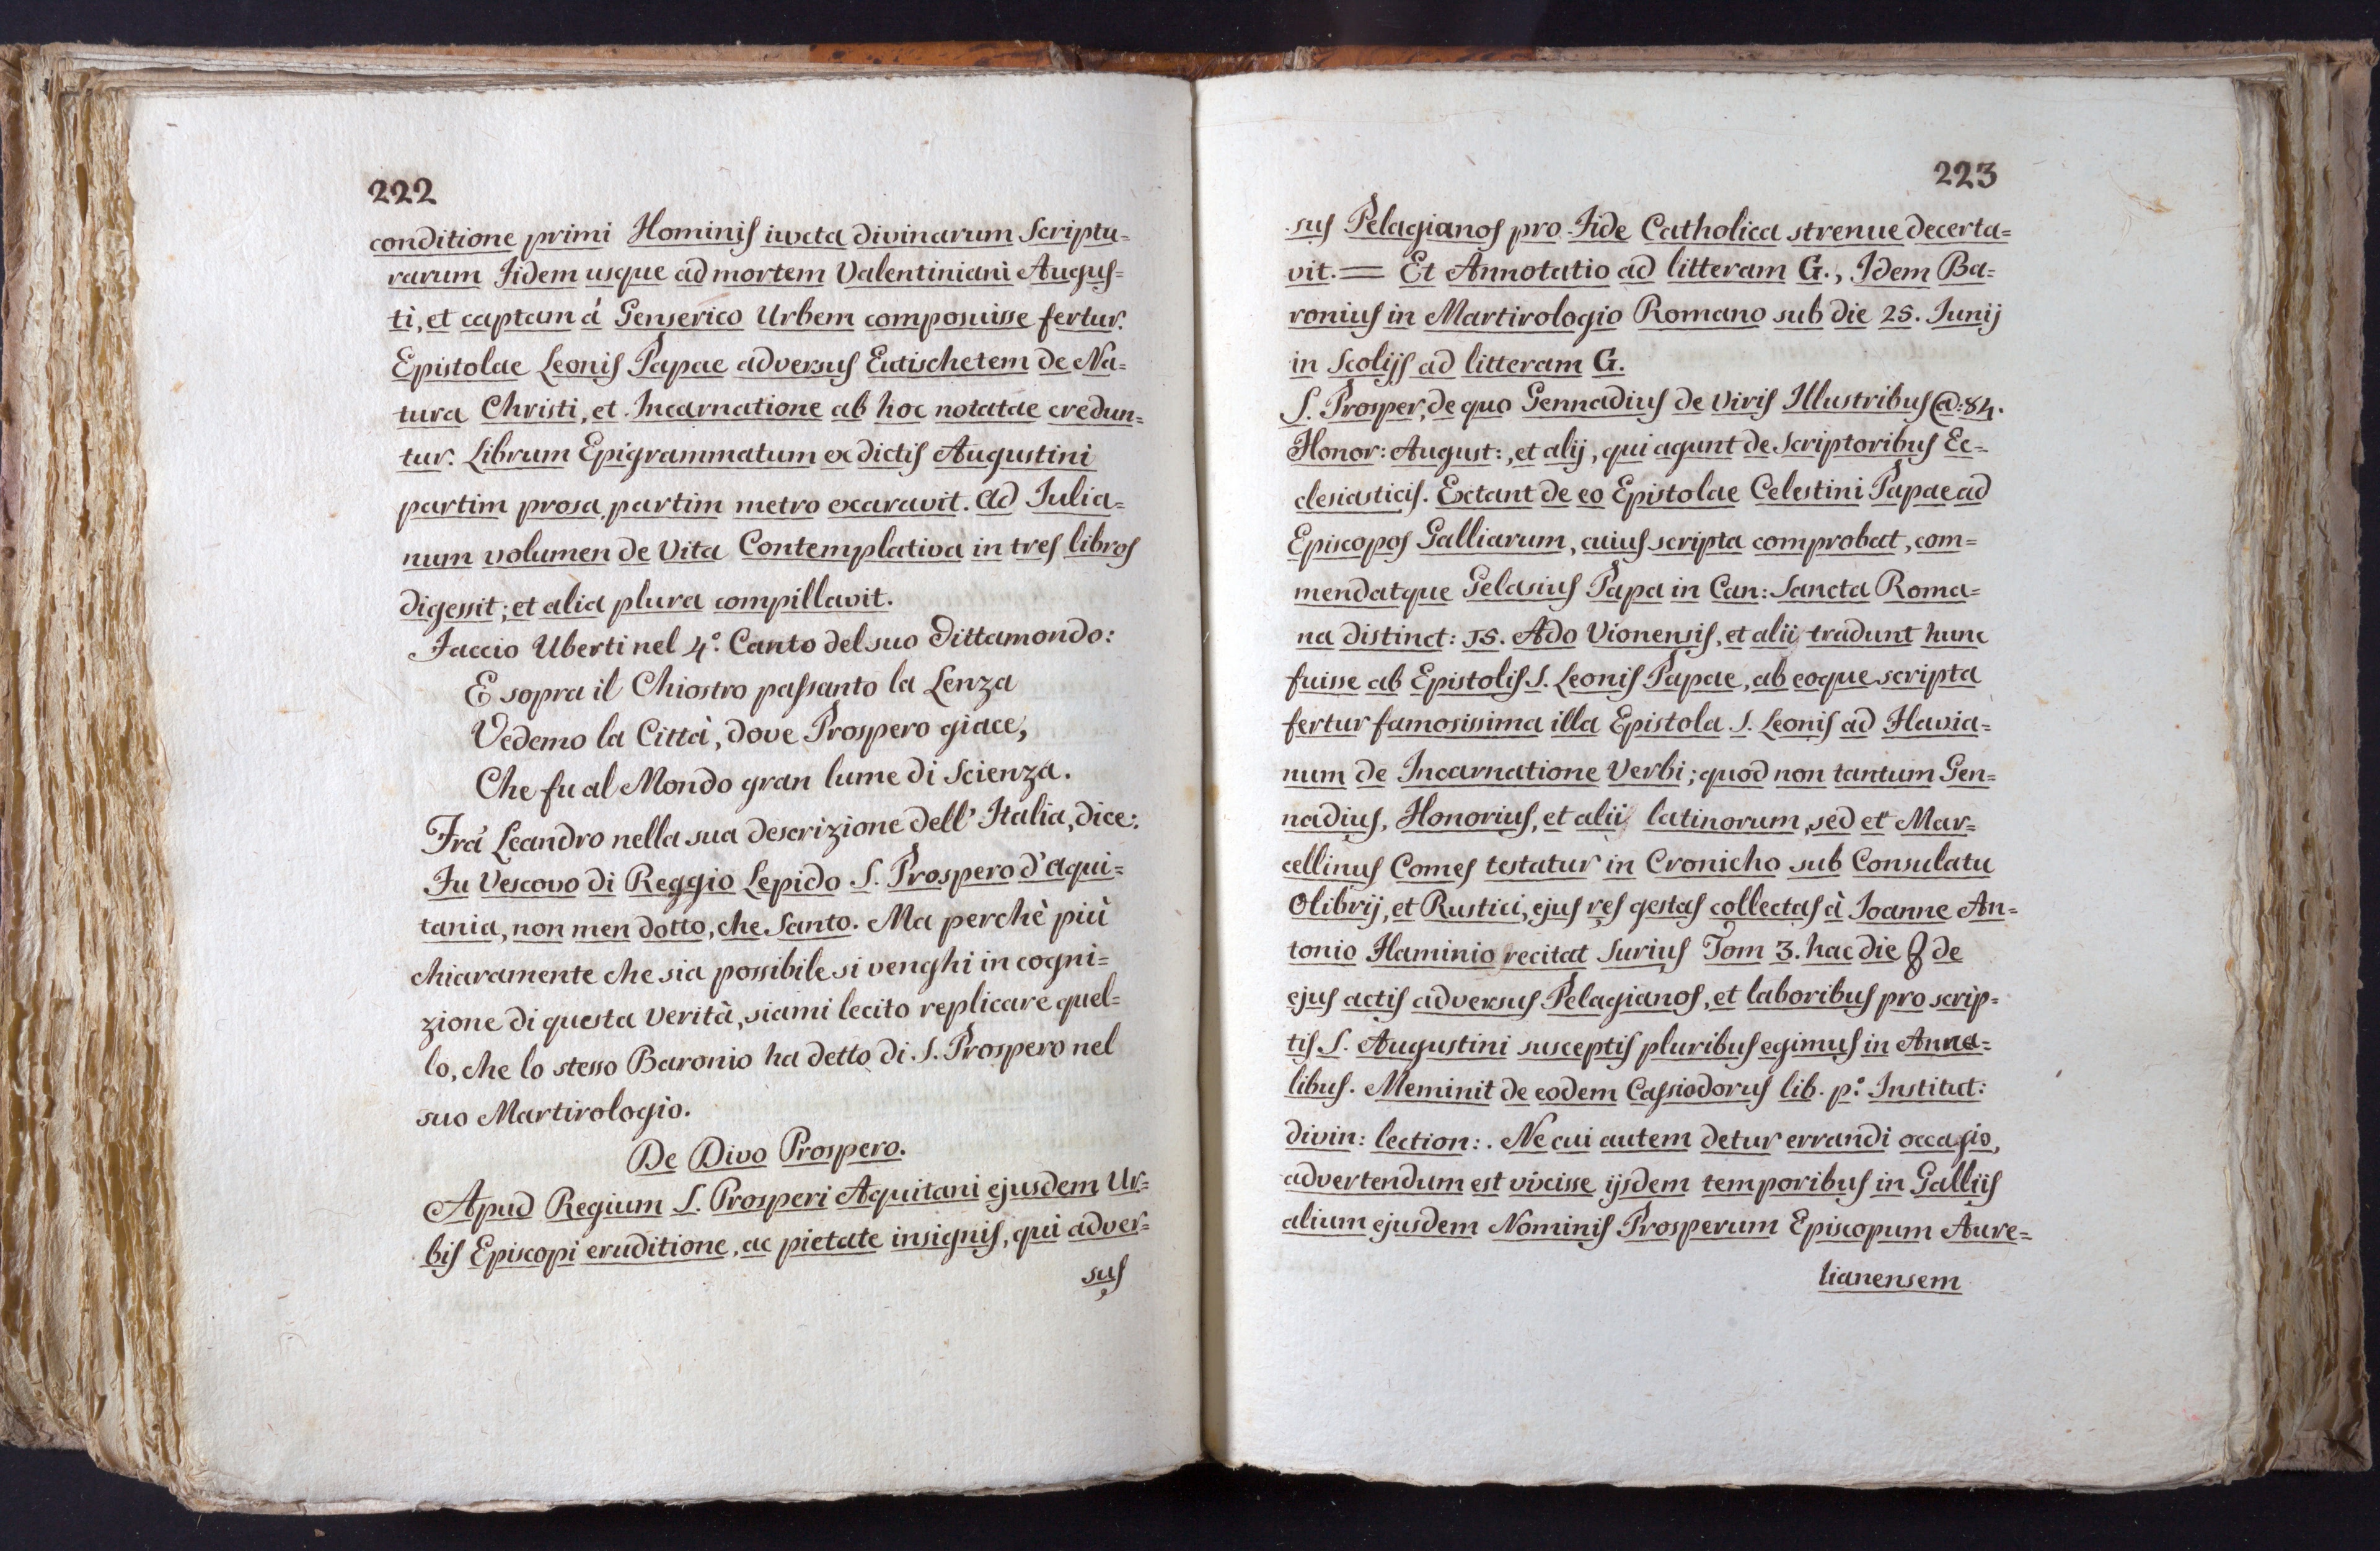 222
conditione primi Hominis iuxta divinarum Scriptu=
rarum Fidem usque ad mortem Valentiniani Augus=
ti, et captam á Genserico Urbem composuisse fertur.
Epistolae Leonis Papae adversus Eutischetem de Na=
tura Christi, et Incarnatione ab hoc notatae credun=
tur. Librum Epigrammatum ex dictis Augustini
partim prosa partim metro exaravit. Ad Iulia=
num volumen de Vita Contemplativa in tres libros
digessit; et alia plura compillavit.
Faccio Uberti nel 4.º Canto del suo Dittamondo:
E sopra il Chiostro passanto la Lenza
Vedemo la Città, dove Prospero giace,
Che fu al Mondo gran lume di Scienza.
Frá Leandro nella sua descrizione dell' Italia, dice:
Fu Vescovo di Reggio Lepido S. Prospero d'Aqui=
tania, non men dotto, che Santo. Ma perchè più
chiaramente che sia possibile si venghi in cogni=
zione di questa Verità, siami lecito replicare quel=
lo, che lo stesso Baronio ha detto di S. Prospero nel
suo Martirologio.
De Divo Prospero.
Apud Regium S. Prosperi Aquitani ejusdem Ur=
bis Episcopi eruditione, ac pietate insignis, qui adver=
sus
223
sus Pelagianos pro Fide Catholica strenue decerta=
vit. = Et Annotatio ad litteram G., Idem Ba=
ronius in Martirologio Romano sub die 25. Junij
in Scolijs ad litteram G.
S. Prosper, de quo Gennadius de Viris Illustribus C:84.
Honor: August:, et alij, qui agunt de Scriptoribus Ec=
clesiasticis. Extant de eo Epistolae Celestini Papae ad
Episcopos Galliarum, cuius scripta comprobat, com=
mendatque Gelasius Papa in Can: Sancta Roma=
na distinct: 15. Ado Vionensis, et alii tradunt hunc
fuisse ab Epistolis S. Leonis Papae, ab eoque scripta
fertur famosissima illa Epistola S. Leonis ad Flavia=
num de Incarnatione Verbi; quod non tantum Gen=
nadius, Honorius, et alii latinorum, sed et Mar=
cellinus Comes testatur in Cronicho sub Consulatu
Olibrij, et Rustici, ejus res gestas collectas à Joanne An=
tonio Flaminio recitat Surius Tom 3. hac die de
ejus actis adversus Pelagianos, et laboribus pro scrip=
tis S. Augustini susceptis pluribus egimus in Anna=
libus. Meminit de eodem Cassiodorus lib. p.º Institut:
divin: lection:. Ne cui autem detur errandi occasio,
advertendum est vixisse ijsdem temporibus in Galliis
alium ejusdem Nominis Prosperum Episcopum Aure=
lianensem